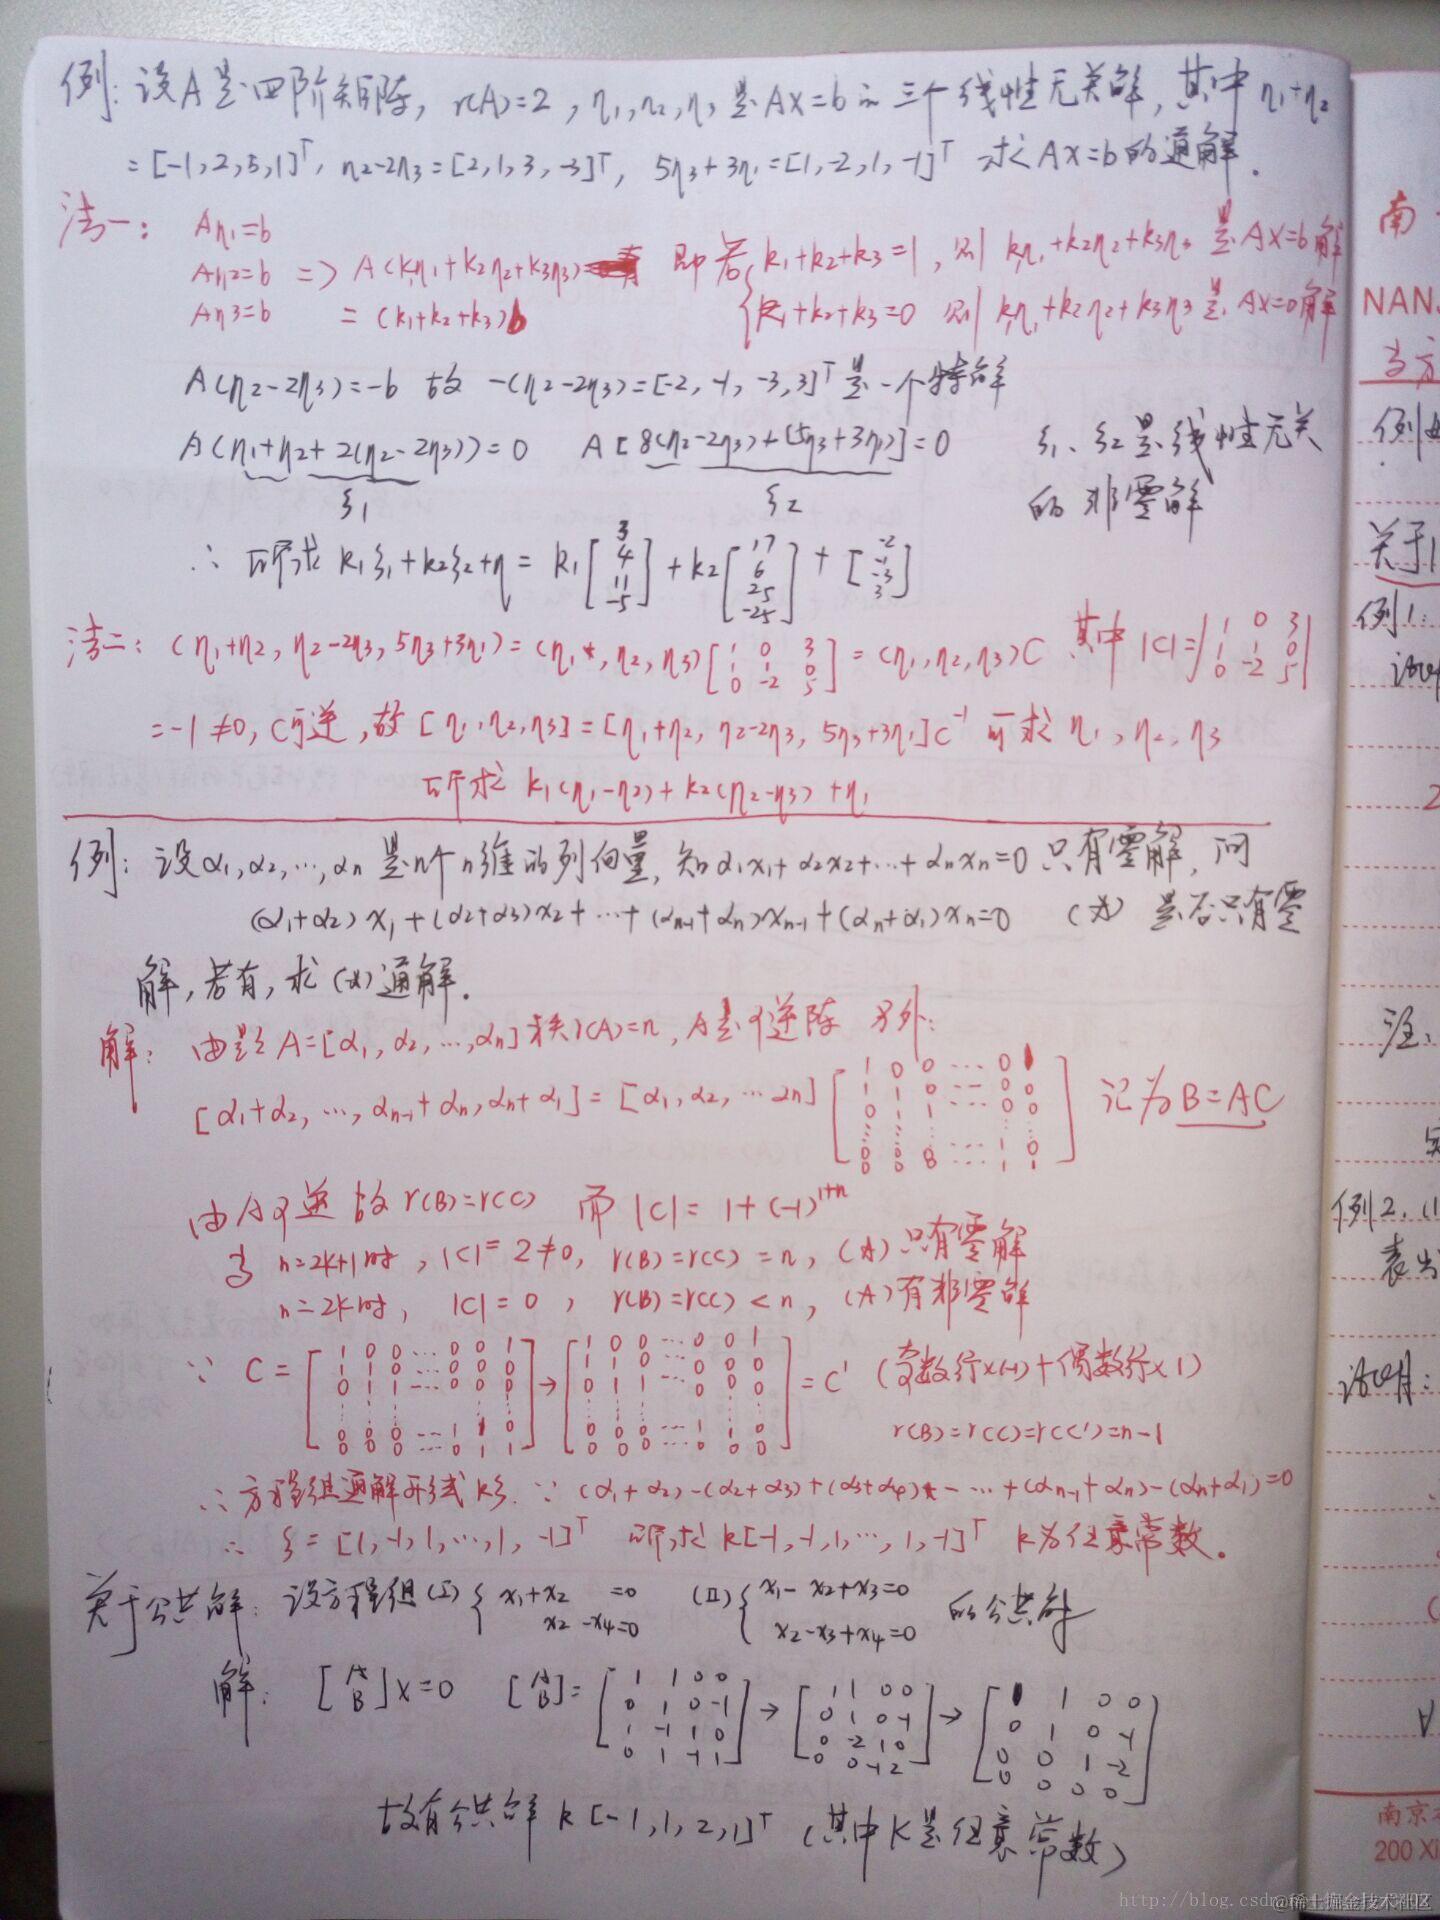 例：设A是四阶矩阵，r(A)=2，η1,η2,η3是Ax=b的三个线性无关解，其中η1+η2
=[-1,2,5,1]ᵀ，η2-2η3=[2,1,3,-3]ᵀ，5η3+3η1=[1,-2,1,-1]ᵀ 求Ax=b的通解.
法一： Aη1=b
Aη2=b => A(k1η1+k2η2+k3η3) 即若{k1+k2+k3=1，则k1η1+k2η2+k3η3是Ax=b解
Aη3=b =(k1+k2+k3)b k1+k2+k3=0 则k1η1+k2η2+k3η3是Ax=0解
A(η2-2η3)=-b 故-(η2-2η3)=[-2,-1,-3,3]ᵀ是一个特解
A(η1+η2+2(η2-2η3))=0 A[8(η2-2η3)+(5η3+3η1)]=0 ξ1、ξ2是线性无关
ξ1 ξ2 的非零解
∴ 所求k1ξ1+k2ξ2+η=k1[3 4 11 -5]+k2[17 6 25 -25]+[-2 -1 -3 3]
法二：(η1+η2,η2-2η3,5η3+3η1)=(η1,η2,η3)[1 0 3 1 1 0 0 -2 5]=(η1,η2,η3)C 其中|C|=|1 0 3 1 1 0 0 -2 5|
=-1≠0，C可逆，故[η1,η2,η3]=[η1+η2,η2-2η3,5η3+3η1]C⁻¹ 可求η1,η2,η3
所求k1(η1-η2)+k2(η2-η3)+η1
例：设α1,α2,…,αn是n个n维的列向量，知α1x1+α2x2+…+αnxn=0只有零解，问
(α1+α2)x1+(α2+α3)x2+…+(αn-1+αn)xn-1+(αn+α1)xn=0 (*) 是否只有零
解，若有，求(*)通解.
解：由题A=[α1,α2,…,αn]秩r(A)=n，A是可逆阵 另外：
[α1+α2,…,αn-1+αn,αn+α1]=[α1,α2,…αn][1 0 0 … 0 1
1 1 0 … 0 0
0 1 1 … 0 0
0 0 0 … 1 0
0 0 0 … 1 1] 记为B=AC
由A可逆 故r(B)=r(C) 而|C|=1+(-1)¹⁺ⁿ
当n=2k+1时，|C|=2≠0，r(B)=r(C)=n，(*)只有零解
n=2k时，|C|=0，r(B)=r(C)<n，(*)有非零解
∵ C=[1 0 0 … 0 0 1
1 1 0 … 0 0 0
0 1 1 … 0 0 0
0 0 0 … 1 1 0
0 0 0 … 0 1 1]→[1 0 0 … 0 0 1
1 1 0 … 0 0 0
0 1 1 … 0 0 0
0 0 0 … 1 1 0
0 0 0 … 0 0 0]=C' (奇数行×(-1)+偶数行×1)
r(B)=r(C)=r(C')=n-1
∴方程组通解形式kξ. ∵ (α1+α2)-(α2+α3)+(α3+α4)-…+(αn-1+αn)-(αn+α1)=0
∴ ξ=[1,-1,1,…,1,-1]ᵀ 所求k[-1,-1,1,…,1,-1]ᵀ k为任意常数.
关于公共解：设方程组(Ⅰ){x1+x2 =0 (Ⅱ){x1-x2+x3=0 的公共解
x2-x4=0 x2-x3+x4=0
解：[A B]x=0 [A B]=[1 1 0 0
0 1 0 -1
1 -1 1 0
0 1 -1 1]→[1 1 0 0
0 1 0 -1
0 -2 1 0
0 0 -1 2]→[1 1 0 0
0 1 0 -1
0 0 1 -2
0 0 0 0]
故有公共解k[-1,1,2,1]ᵀ (其中k是任意常数)
南
NAN
当方
例
关于
例1:
证明
2
注、
例2.(1
表出
证明:
南京
200 Xi
http://blog.csdn.
@稀土掘金技术社区